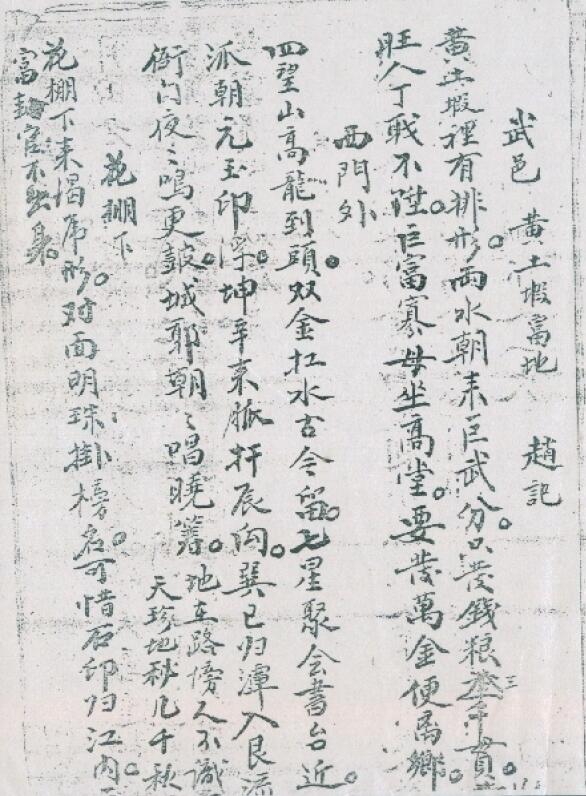 武邑 黃土塅富地 趙記
黃土塅裡有排形。両水朝來巨武分。只發錢粮
旺人丁戢不陞。巨富寡母坐高堂。要發萬金便離鄉。
西門外
四望山高龍到頭。双金扛水古今留。七星聚会書台近。
派朝元玉印浮。坤辛來脈扦辰向。巽巳归潭入艮流
衙门夜〻鳴更鼓。城郭朝〻唱曉籌。地在路傍人不識
天珍地秘几千秋
花棚下
花棚下來褐虎形。对面明珠掛榜名。可惜石印归江內。
富 官不出身。